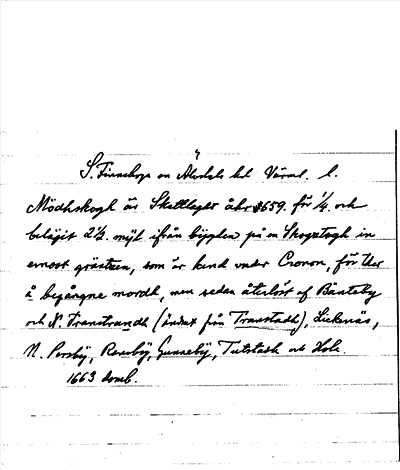 S. Finnskoga en Älvdals hd Värml. l.
Mödhskogh är Skattlagt åhr 1659. för 1/4. och
belägit 2 1/2. mijl ifrån bijgden på en Skogztogh in
emoot gräntzen, som är kund under Cronon, för ther
å begångne mordh, men sedan återlöst af Bänteby
och N. Transtrandh (ändrat från Transtadh), Lickenäs,
N. Persbÿ, Ransbÿ, Gunnebÿ, Tutstadh och Hole.
1663 domb.